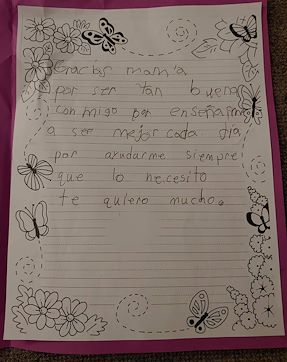 Gracias mamá
por ser tan buena
conmigo por enseñarme
a ser mejor cada dia
por ayudarme siempre
que lo necesito
te quiero mucho.